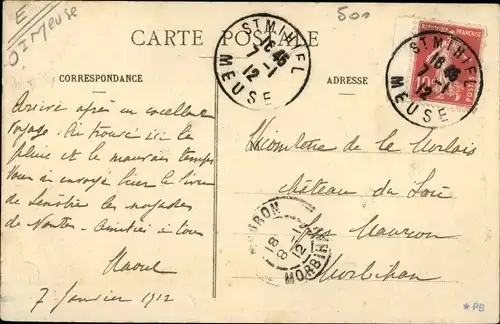 E
Meuse
500
CARTE POSTALE
CORRESPONDANCE
ADRESSE
ST MIHIEL
16 45
7 - 1
12
MEUSE
REPUBLIQUE FRANÇAISE
10
POSTES
ST MIHIEL
16 45
7 - 1
12
MEUSE
Arrivé après un excellent
voyage. Ai trouvé ici la
pluie et le mauvais temps
Vous ai envoyé hier le livre
de Lenôtre les noyades
de Nantes. Amitiés à tous
Raoul
7 Janvier 1912
Vicomtesse de la
château du
par Mauron
Morbihan
MAURON
MORBIHAN
18
8 - 1
12
*PB